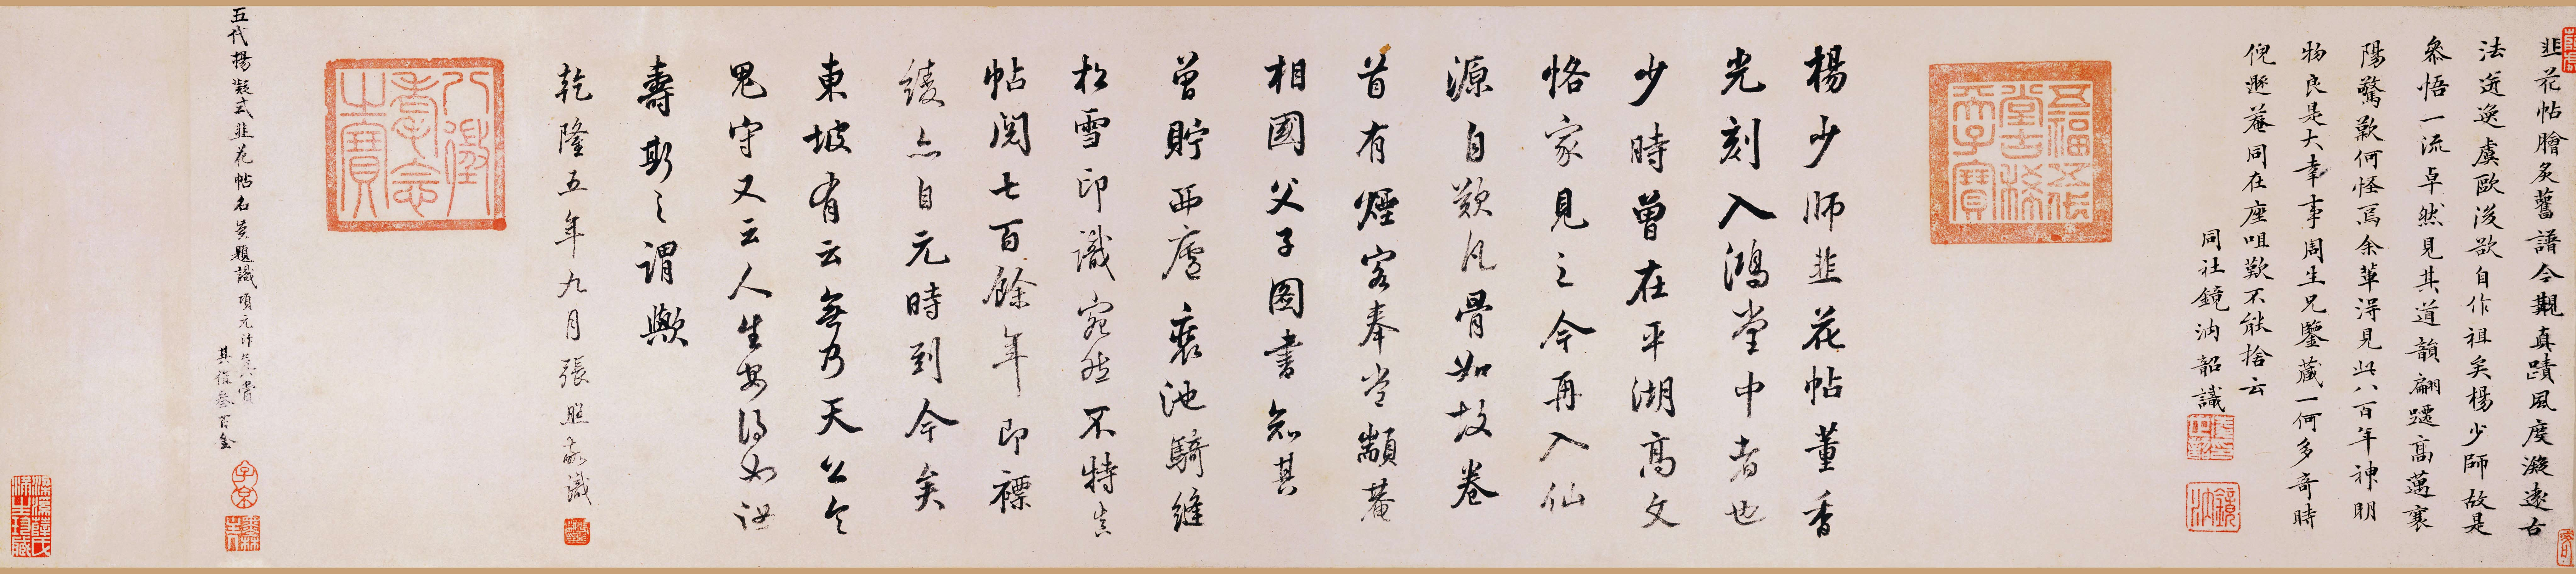 韭花帖膾炙舊譜今觀真蹟風度凝遠古
法遒逸虞歐後欲自作祖矣楊少師故是
叅悟一流卓然見其道韻翩躚高邁襄
陽驚歎何怪焉余輩得見此八百年神明
物良是大幸事周生兄鑒藏一何多奇時
倪遯菴同在座咀歎不能捨云
同社鏡汭韶識
五福五代
堂古稀
天子寶
楊少師韭花帖董香
光刻入鴻堂中者也
少時曾在平湖高文
恪家見之今再入仙
源自歎凡骨如故卷
首有煙客奉嘗顓菴
相國父子圖書知其
曾貯西廬裏池騎縫
松雪印識宛然不特真
帖閱七百餘年即褾
綾亦自元時到今矣
東坡有云無乃天公令
鬼守又云人生安得如汝
壽斯之謂歟
乾隆五年九月張照敬識
八徵
耄念
之寶
五代楊凝式韭花帖名賢題識項元汴真賞
其值叁百金
子京